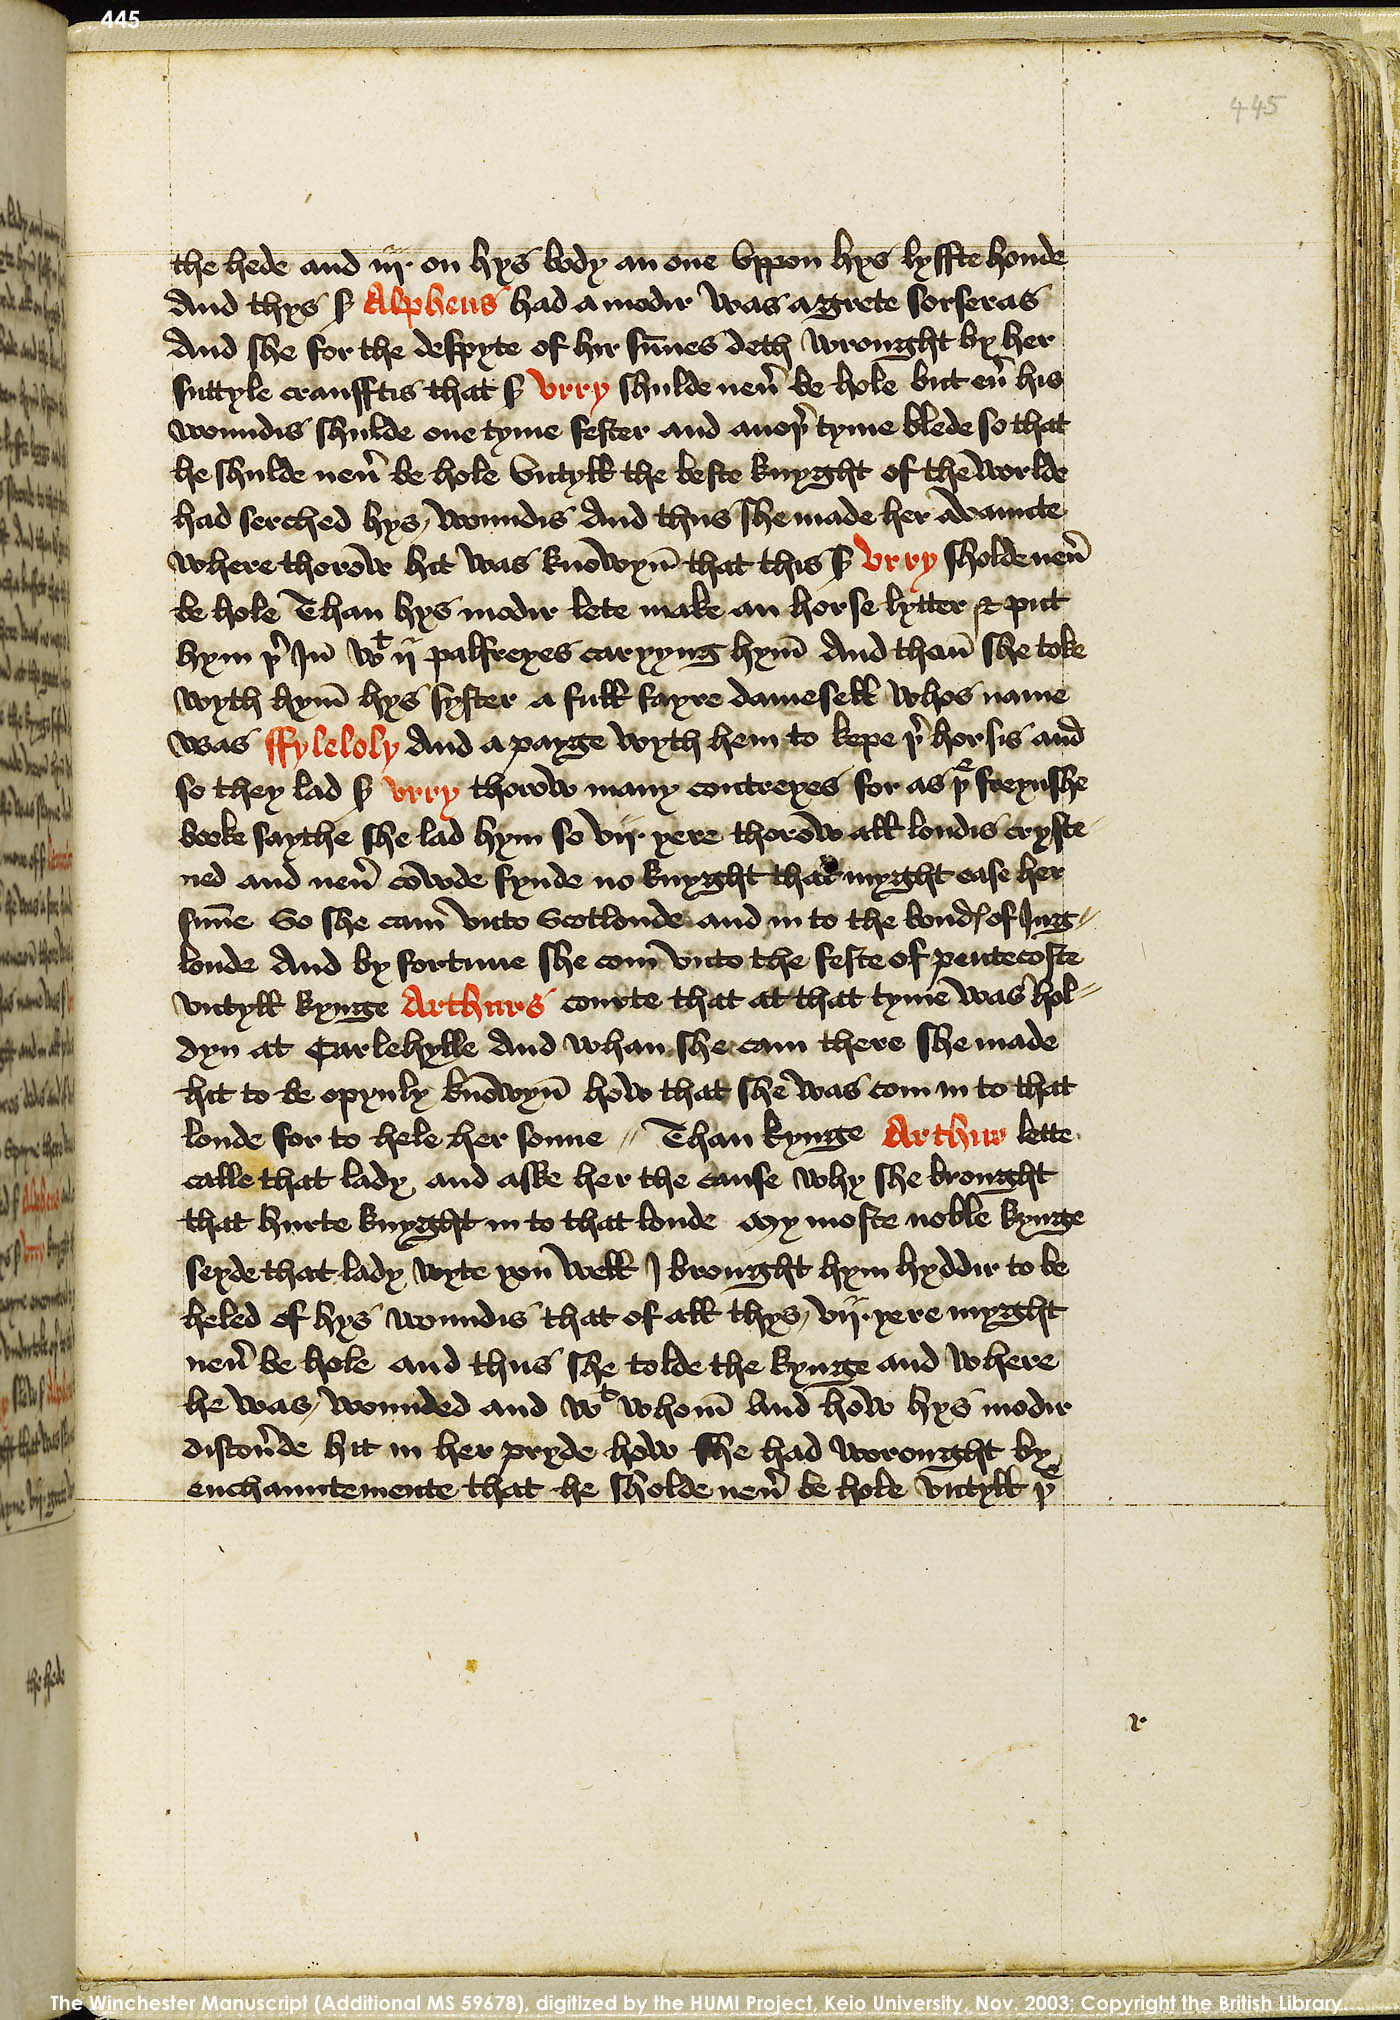 445
445
the hede and iij. on hys body an one vppon hys lyffte honde
And thys sʳ Alpheus had a modir was a grete sorseras
And she for the despyte of hir sūnes deth wrought by her
suttyle craufftis that sʳ Vrry shulde neu̾ be hole but eu̾ his
woundis shulde one tyme fester and anoþ̾ tyme blede so that
he shulde neu̾ be hole vntyll the beste knyght of the worlde
had serched hys woundis And thus she made her avaunte
where thorow hit was knowyn̄ that this sʳ Vrry sholde neu̾
be hole Than hys modir lete make an horse lytter & put
hym þ̾ Jn̄ wᵗ ij palfreyes caryyng hym̄ And then̄ she toke
wyth hym̄ hys syster a full fayre damesell whos name
was ffyleloly And a payge wyth hem to kepe þ̾ horsis and
so they lad sʳ Vrry thorow many contreyes for as þᵉ freynshe
booke saythe she lad hym so vij. yere thorow all londis cryste
ned and neu̾ cowde fynde no knyght that myght ease her
sūne So she cam vnto Scotlonde and in to the bondꝭ of Jng⸗
londe And by fortune she com vnto the feste of pentecoste
vntyll kynge Arthurs courte that at that tyme was hol⸗
dyn at Carlehylle And whan she cam there she made
hit to be opynly knowyn̄ how that she was com in to that
londe for to hele her sonne // Than kynge Arthur lette
calle that lady and aske her the cause why she brought
that hurte knyght in to that londe My moste noble kynge
seyde that lady wyte you well J brought hym hyddir to be
heled of hys woundis that of all thys vij. yere myght
neu̾ be hole and thus she tolde the kynge and where
he was wounded and wᵗ whom̄ And how hys modir
discou̾de hit in her pryde how she had worought by
enchauntemente that he sholde neu̾ be hole vntyll þᵉ
the hede
r
The Winchester Manuscript (Additional MS 59678), digitized by the HUMI Project, Keio University, Nov. 2003; Copyright the British Library